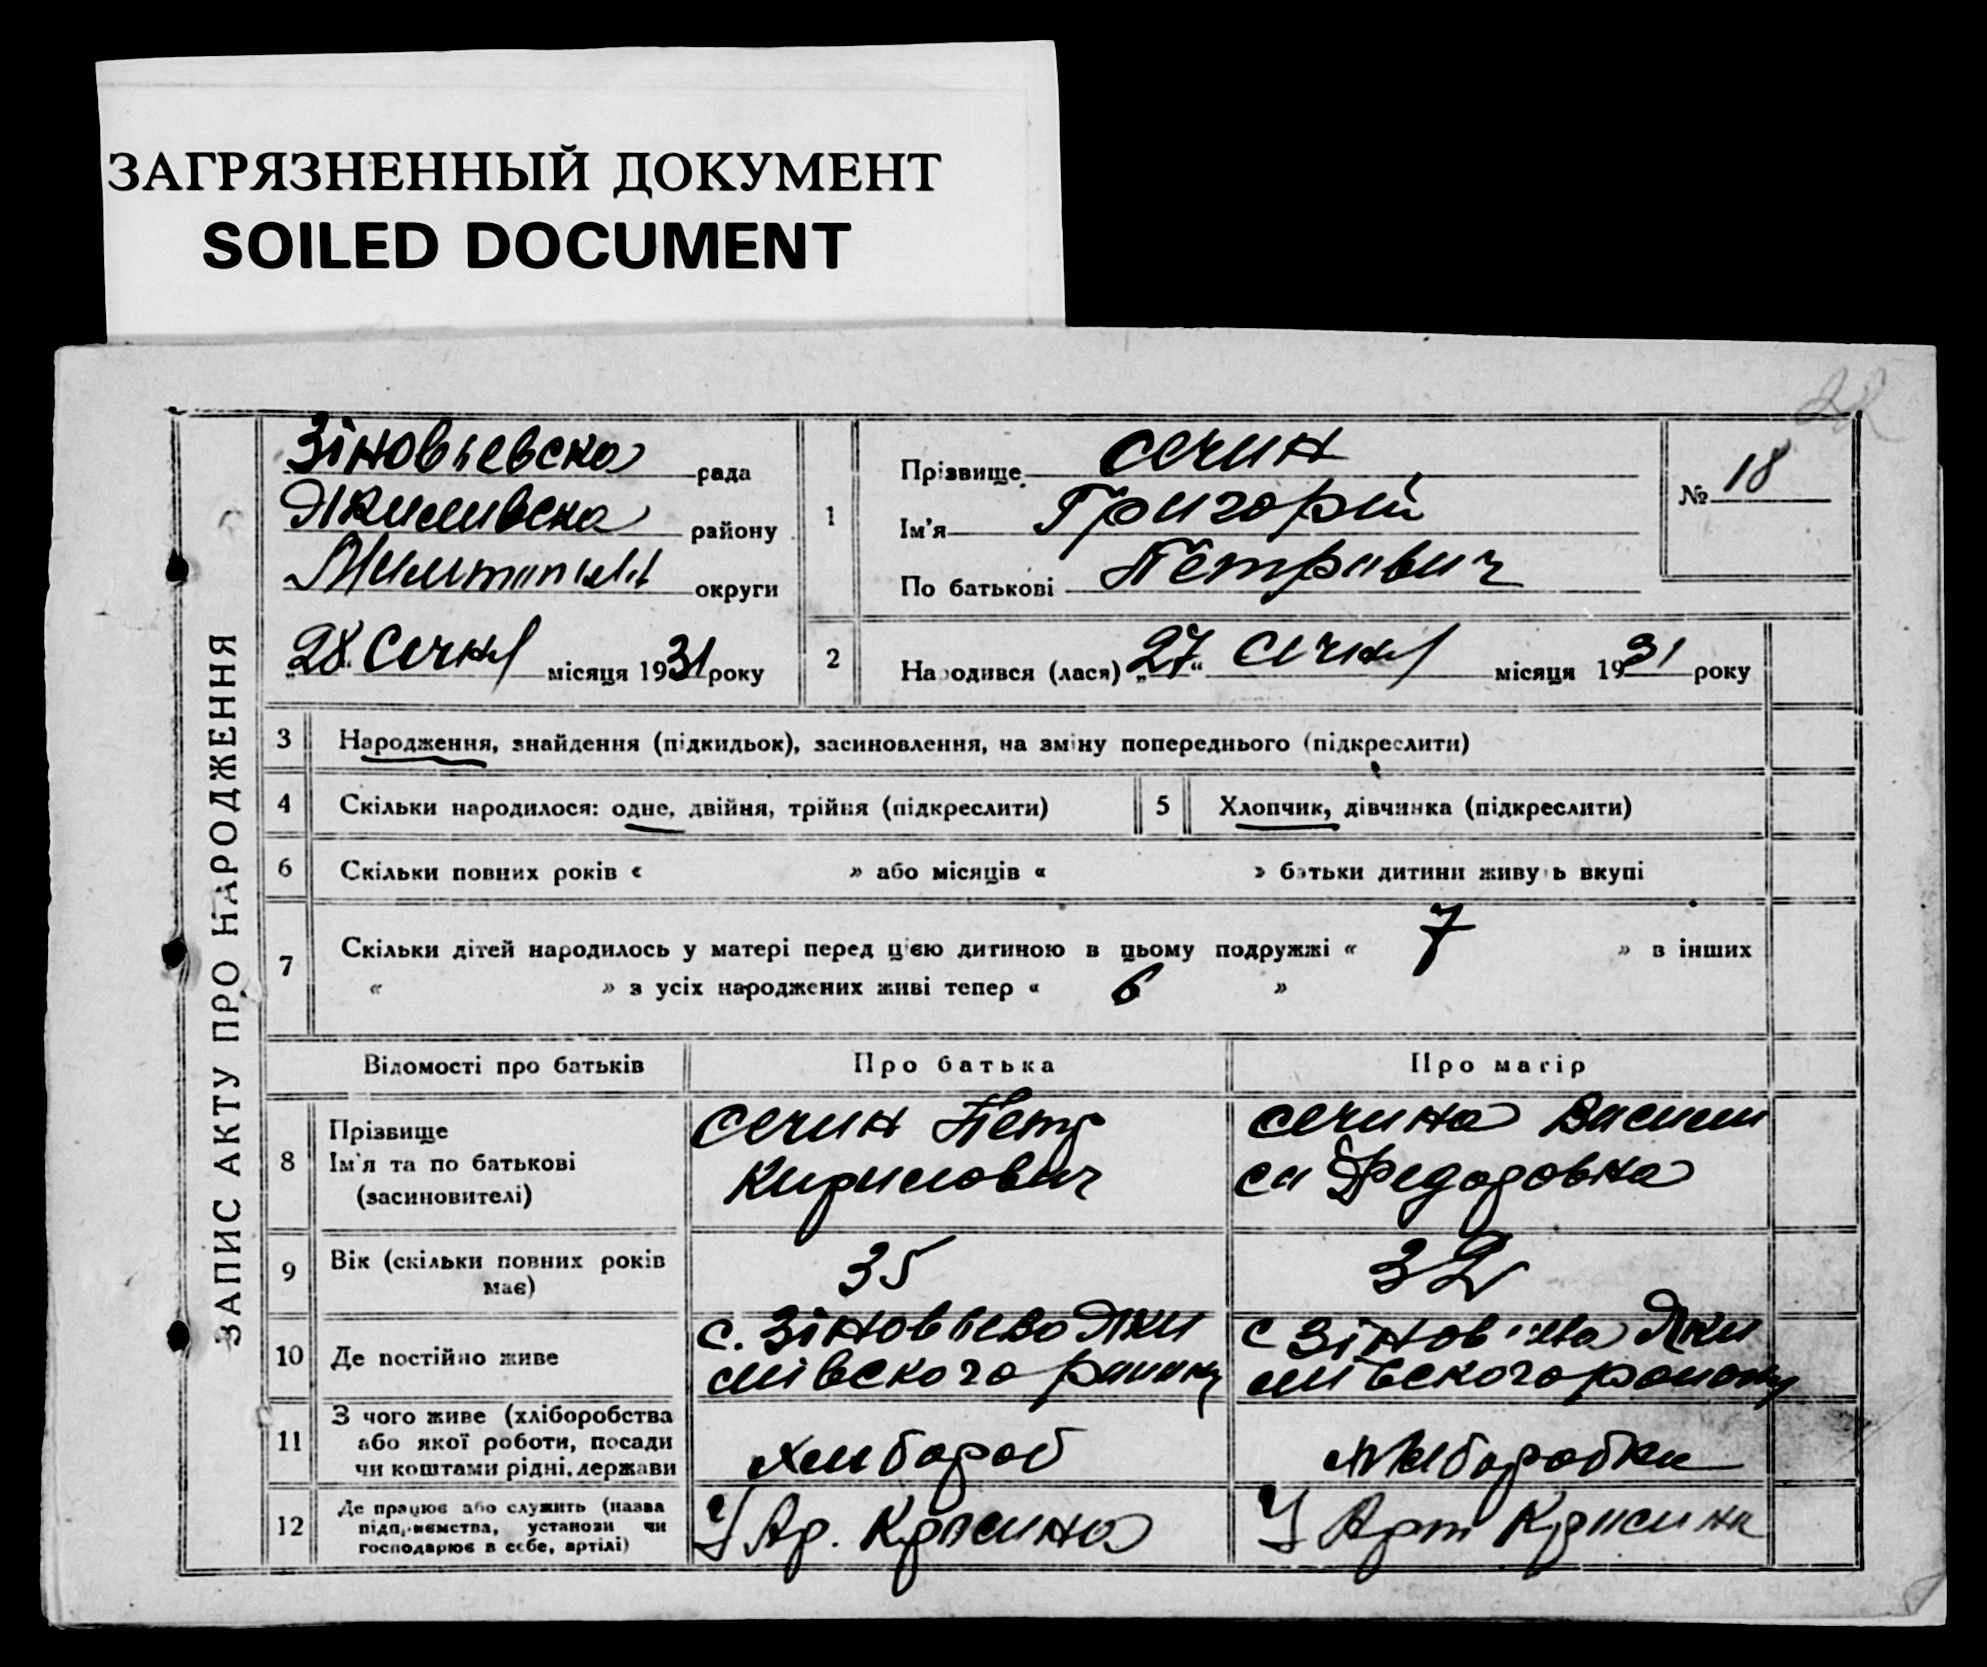 ЗАГРЯЗНЕННЫЙ ДОКУМЕНТ
SOILED DOCUMENT
22
ЗАПИС АКТУ ПРО НАРОДЖЕННЯ
Зіновьевска рада
Якимивска району
округи
„28“ Сечня місяця 1931 року
1
Прізвище Сечин
Ім'я Григорій
По батькові Петравич
№ 18
2
Народився (лася) „27“ Сечня місяця 1931 року
3 Народження, знайдення (підкидьок), засиновлення, на зміну попереднього (підкреслити)
4 Скільки народилося: одне, двійня, трійня (підкреслити) 5 Хлопчик, дівчинка (підкреслити)
6 Скільки повних років « » або місяців « » батьки дитини живуть вкупі
7 Скільки дітей народилось у матері перед цією дитиною в цьому подружжі « 7 » в інших
« » з усіх народжених живі тепер « 6 »
Відомості про батьків Про батька Про матір
8 Прізвище
Ім'я та по батькові
(засиновителі)
Сечин Петр
Кирилович
Сечина Васили
са Федоровна
9 Вік (скільки повних років
має)
35
32
10 Де постійно живе
с. Зіновьево Яки
мівского району
с Зіновьева Яки
мівского району
11 З чого живе (хліборобства
або якої роботи, посади
чи коштами рідні, держави
Хлибороб
Хлиборобка
12 Де працює або служить (назва
підприємства, установи чи
господарює в себе, артілі)
У Ар. Красина
У Арт Красина